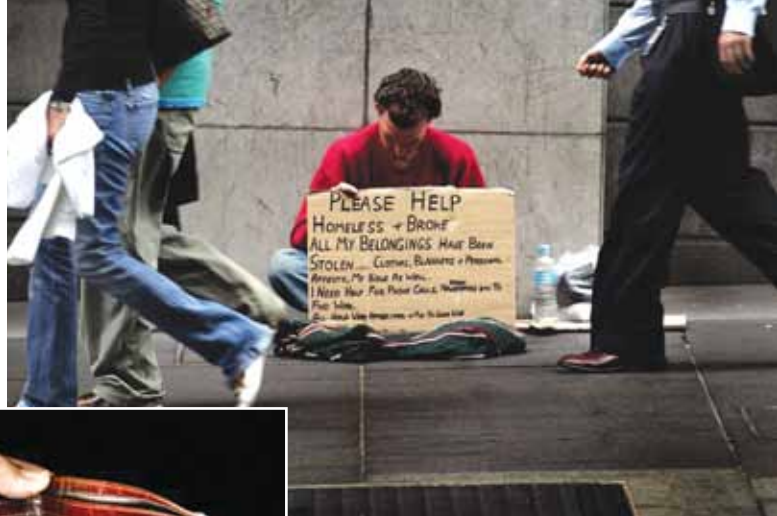 PLEASE HELP
HOMELESS + BROKE
ALL MY BELONGINGS HAVE BEEN
STOLEN.... CLOTHES, BLANKETS + PERSONAL
EFFECTS, MY BIBLE AS WELL...
I NEED HELP FOR PHONE CALLS, TO
FIND WORK.